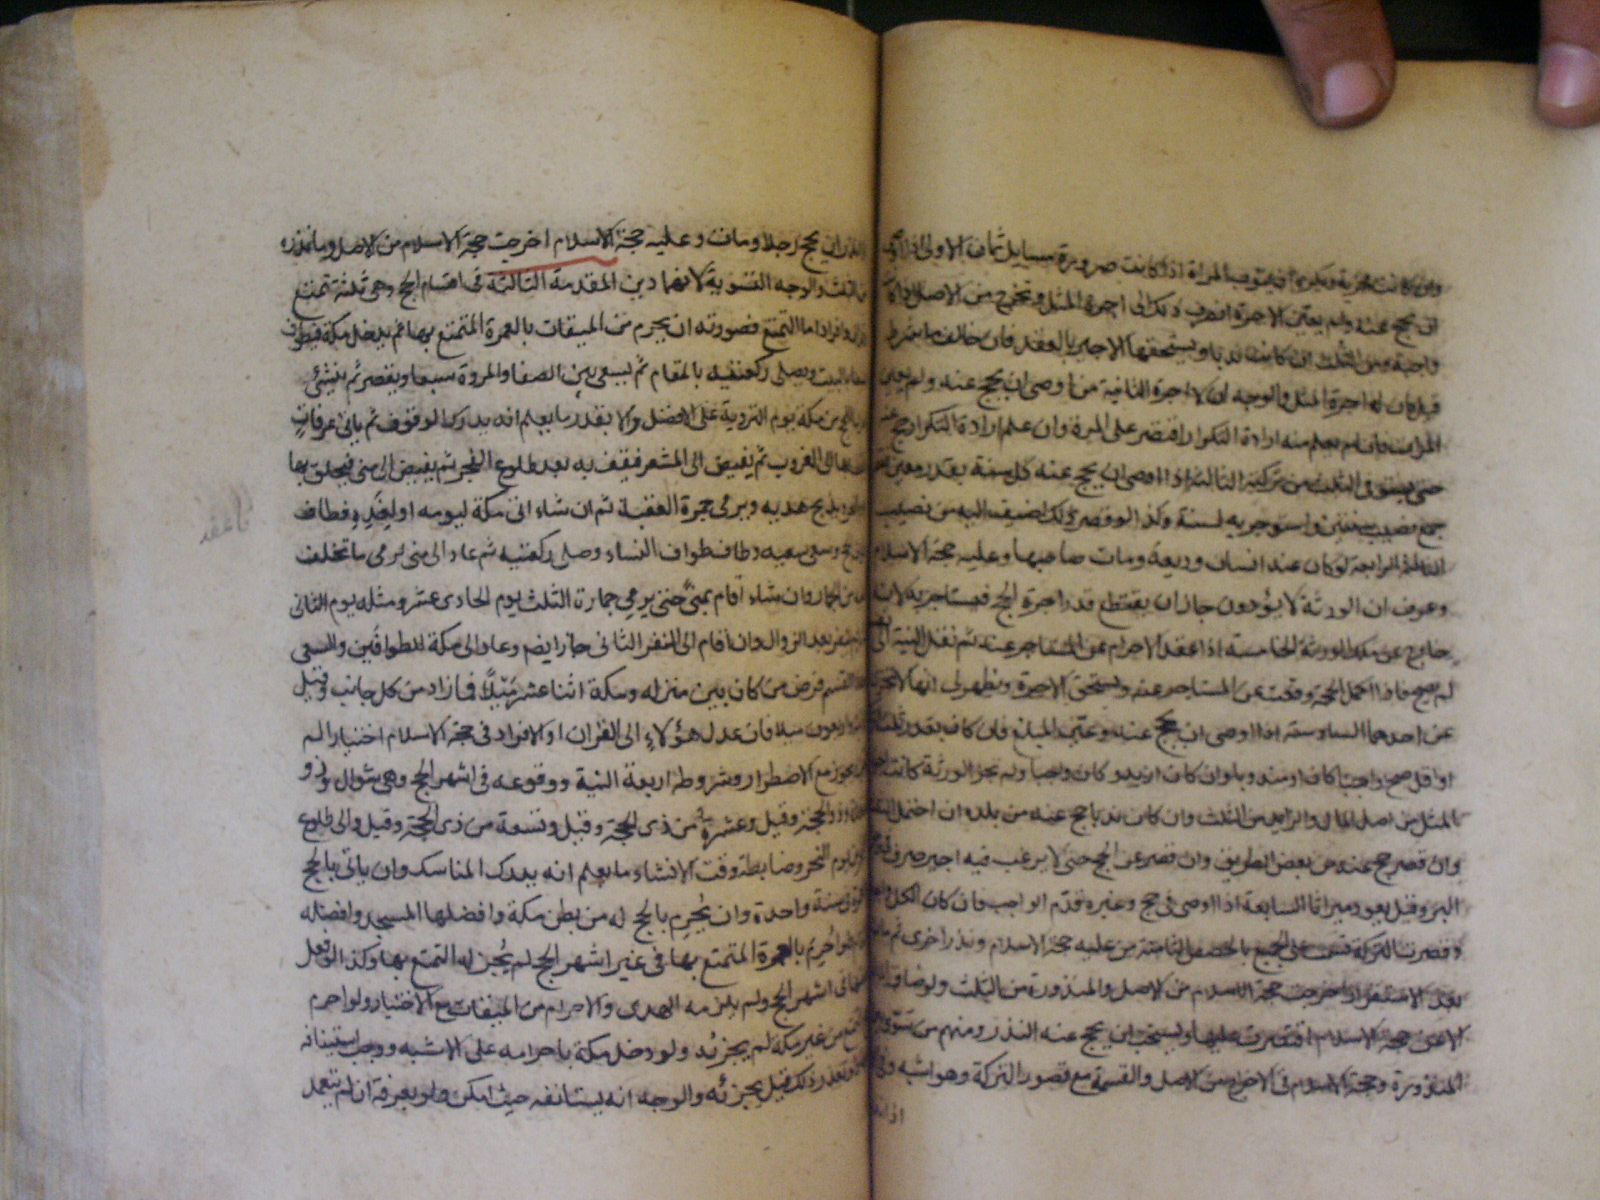 وان كانت ويكره المراة اذا كانت صرورة مسايل ثمان الاولى اذا
ان يحج عنه ولم يعين الاجرة انصرف ذلك الى اجرة المثل وتخرج من الاصل
واجبة ومن الثلث ان كانت ندبا ويستحقها الاجير بالعقد فان خالف ما شرط
قيل كان له اجرة المثل والوجه ان لا اجرة الثانية من اوصى ان يحج عنه ولم يعين
المرات فان لم يعلم منه ارادة التكرار اقتصر على المرة وان علم ارادة التكرار حج عنه
حتى يستوفى الثلث من تركته الثالثة اذا اوصى ان يحج عنه كل سنة بقدر معين
جمع نصيب سنتين واستوجر به لسنة وكذا لو قصر ذلك اضيف اليه من نصيب
الثالثة الرابعة لو كان عند انسان وديعة ومات صاحبها وعليه حجة الاسلام
وعرف ان الورثة لا يؤدون جاز ان يقتطع قدر اجرة الحج فيستاجر به لانه
خارج عن ملك الورثة الخامسة اذا عقد الاحرام عن المستاجر عنه ثم نقل النية الى
لم يصح فاذا اكمل الحجة وقعت عن المستاجر عنه ويستحق الاجرة ويظهر لى انها لا تجزى
عن احدهما السادسة اذا اوصى ان يحج عنه وعين المبلغ فان كان بقدر ثلث
او اقل صح واجبا كان او مندوبا وان كان ازيد وكان واجبا ولم يجز الورثة كانت
المثل من اصل المال والزايد من الثلث وان كان ندبا حج عنه من بلده ان احتمل الثلث
وان قصر حج عنه من بعض الطريق وان قصر عن الحج حتى لا يرغب فيه اجير صرف فى
البر وقيل يعود ميراثا السابعة اذا اوصى فى حج وغيره قدم الواجب فان كان الكل
وقصرت التركة قسمت على الجميع بالحصص الثامنة من عليه حجة الاسلام ونذر اخرى ثم مات
بعد الاستقرار اخرجت حجة الاسلام من الاصل والمنذورة من الثلث ولو ضاق
الا عن حجة الاسلام اقتصرت عليها ويستحب ان يحج عنه النذر ومنهم من سوى
المنذورة وحجة الاسلام فى الاخراج من الاصل والقسمة مع قصور التركة وهو اشبه وفى
ان يحج رجلا ومات وعليه حجة الاسلام اخرجت حجة الاسلام من الاصل وما نذره
من الثلث والوجه التسوية لانهما دين المقدمة الثالثة فى اقسام الحج وهى ثلثة تمتع
وقران وافراد اما التمتع فصورته ان يحرم من الميقات بالعمرة المتمتع بها ثم يدخل مكة فيطوف
بالبيت ويصلى ركعتيه بالمقام ثم يسعى بين الصفا والمروة سبعا ويقصر ثم ينشئ
بالحج من مكة يوم التروية على الافضل والا بقدر ما يعلم انه يدرك الوقوف ثم ياتى عرفات
الى الغروب ثم يفيض الى المشعر فيقف به بعد طلوع الفجر ثم يفيض الى منى فيحلق بها
ويذبح هديه ويرمى جمرة العقبة ثم ان شاء اتى مكة ليومه او لغده فطاف
وسعى سعيه وطاف طواف النساء وصلى ركعتيه ثم عاد الى منى لرمى ما تخلف
من الجمار وان شاء اقام بمنى حتى يرمى جماره الثلث يوم الحادى عشر ومثله يوم الثانى
بعد الزوال وان اقام الى النفر الثانى جاز ايضم وعاد الى مكة للطوافين والسعى
القسم فرض من كان بين منزله ومكة اثنا عشر ميلا فما زاد من كل جانب وقيل
واربعون ميلا فان عدل هؤلاء الى القران او الافراد فى حجة الاسلام اختيارا لم
يجوز مع الاضطرار وشروطه اربعة النية ووقوعه فى اشهر الحج وهى شوال وذو
وذو الحجة وقيل وعشرة من ذى الحجة وقيل وتسعة من ذى الحجة وقيل والى طلوع
يوم النحر وضابطة وقت الانشاء ما يعلم انه يدرك المناسك وان ياتى بالحج
سنة واحدة وان يحرم بالحج له من بطن مكة وافضلها المسجد وافضله
احرم بالعمرة المتمتع بها فى غير اشهر الحج لم يجز له التمتع بها وكذا لو فعل
فى اشهر الحج ولم يلزمه الهدى والاحرام من الميقات مع الاختيار ولو احرم
من غير مكة لم يجزئه ولو دخل مكة باحرامه على الاشبه ووجب استينافه
ولو تعذر ذلك قيل يجزئه والوجه انه يستانفه حيث امكن ولو بعرفة ان لم يتعمد